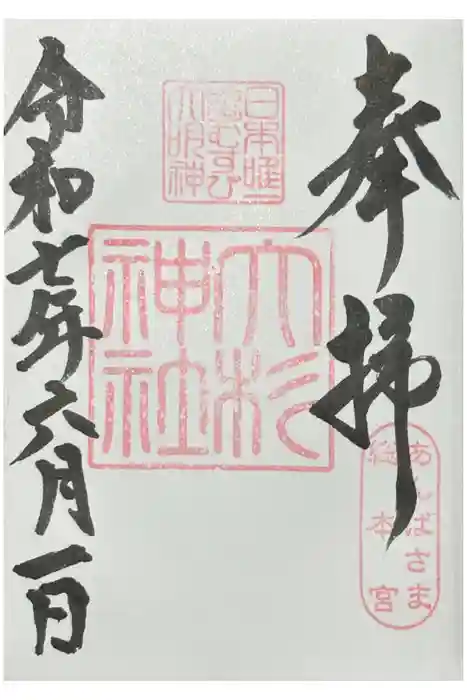 奉拝
あんばさま
総本宮
日本唯一
夢むすび
大明神
大杉
神社
令和七年六月一日